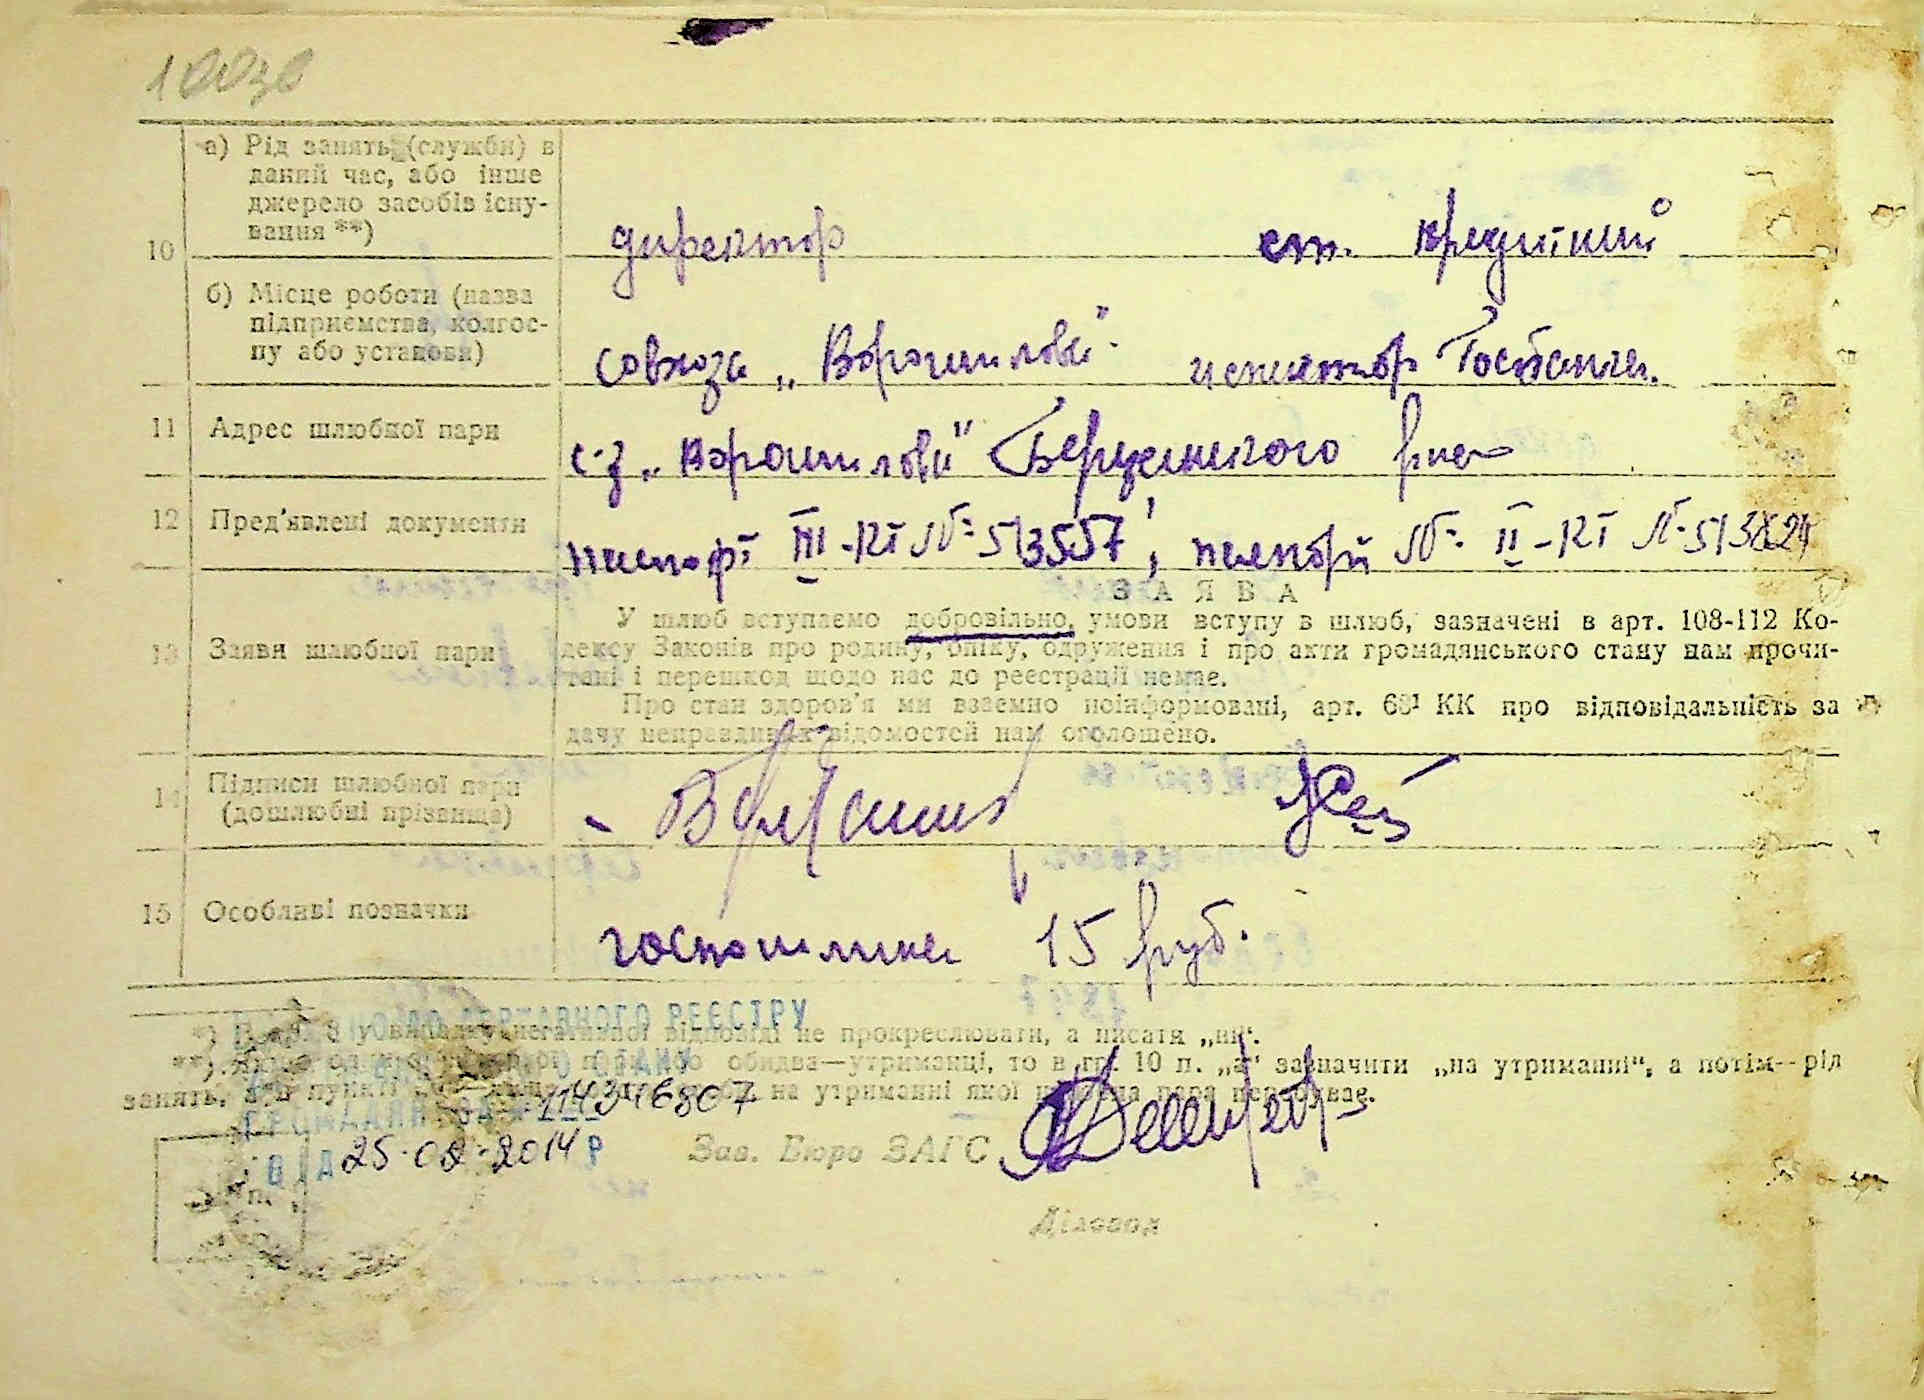 10030
а) Рід занять (служби) в
даний час, або інше
джерело засобів існу-
вання **)
10
директор ст. кредитний
б) Місце роботи (назва
підприємства, колгос-
пу або установи)
совхоза „Ворошилова" инспектор Госбанка.
11 Адрес шлюбної пари
с-з „Ворошилова"
12 Пред'явлені документи
паспорт III-КІ № 513557, паспорт № II-КІ №
13 Заяви шлюбної пари
ЗАЯВА
У шлюб вступаємо добровільно, умови вступу в шлюб, зазначені в арт. 108-112 Ко-
дексу Законів про родину, опіку, одруження і про акти громадянського стану нам прочи-
тані і перешкод щодо нас до реєстрації немає.
Про стан здоров'я ми взаємно поінформовані, арт. КК про відповідальність за
дачу неправдивих відомостей нам оголошено.
14 Підписи шлюбної пари
(дошлюбні прізвища)
15 Особливі позначки
госпошлина 15 руб.
ДЕРЖАВНОГО РЕЄСТРУ
*) негативної відповіді не прокреслювати, а писати „ні".
обидва—утриманці, то в гр. 10 п. „а" зазначити „на утриманні", а потім—рід
занять, а в пункті на утриманні якої
ГРОМАДЯН
ВІД 25.02.2014 Р
Зав. Бюро ЗАГС
Діловод